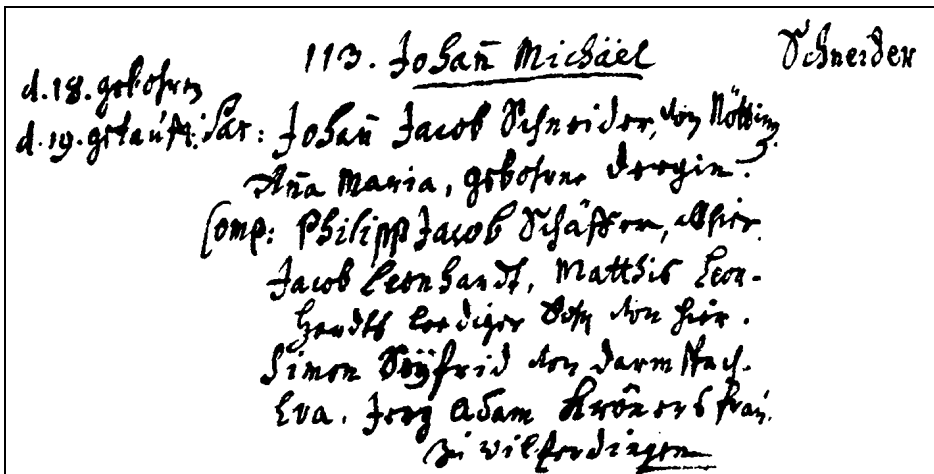 113. Johan̄ Michäel Schneider
d. 18. gebohren
d. 19. getauft: Par: Johan̄ Jacob Schneider, von Nötting.
An̄a Maria, gebohrne
Comp: Philipp Jacob Schäffer, allhier.
Jacob Leonhardt, Matthis Leon-
hardts lediger Sohn von hier.
Simon Seÿfrid von Darmspach.
Eva. Jerg Adam Kröners frau.
zu Wilferdingen